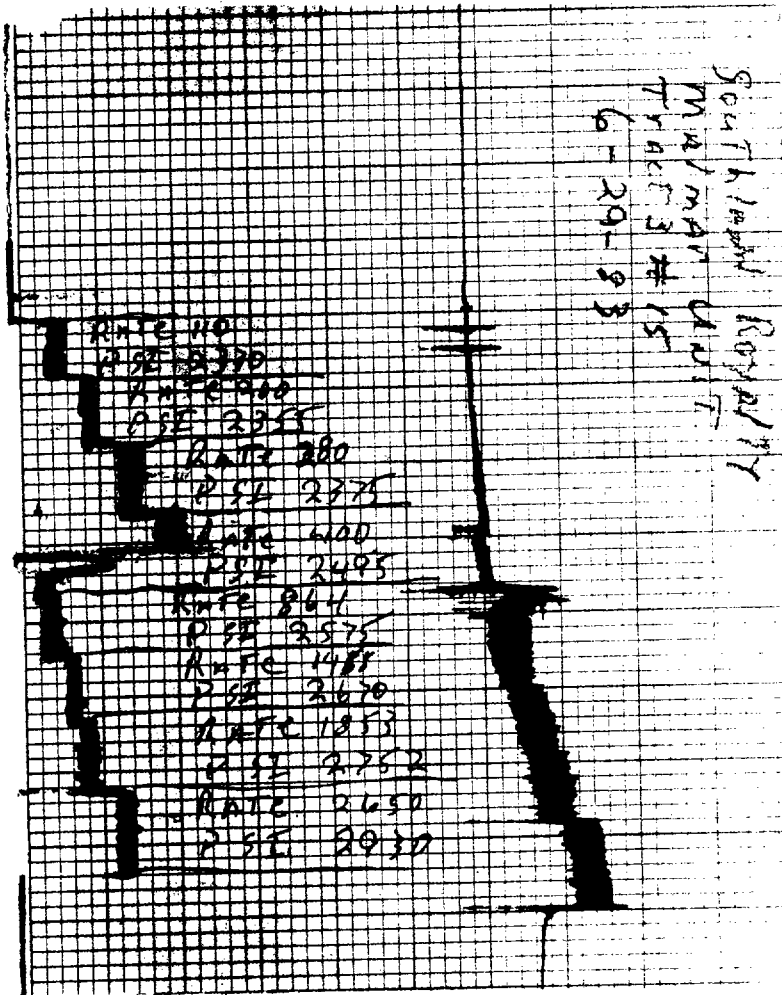 SouThland RoyalTY
MalmAr UniT
TracT-3 # 15
6-29-83
RaTe 110
PSI 2370
RaTe 200
PSI 2355
RaTe 280
PSI 2375
RaTe 400
PSI 2495
RaTe 864
PSI 2575
RaTe
PSI 2670
RaTe 1853
PSI 2752
RaTe 2650
PSI 2930